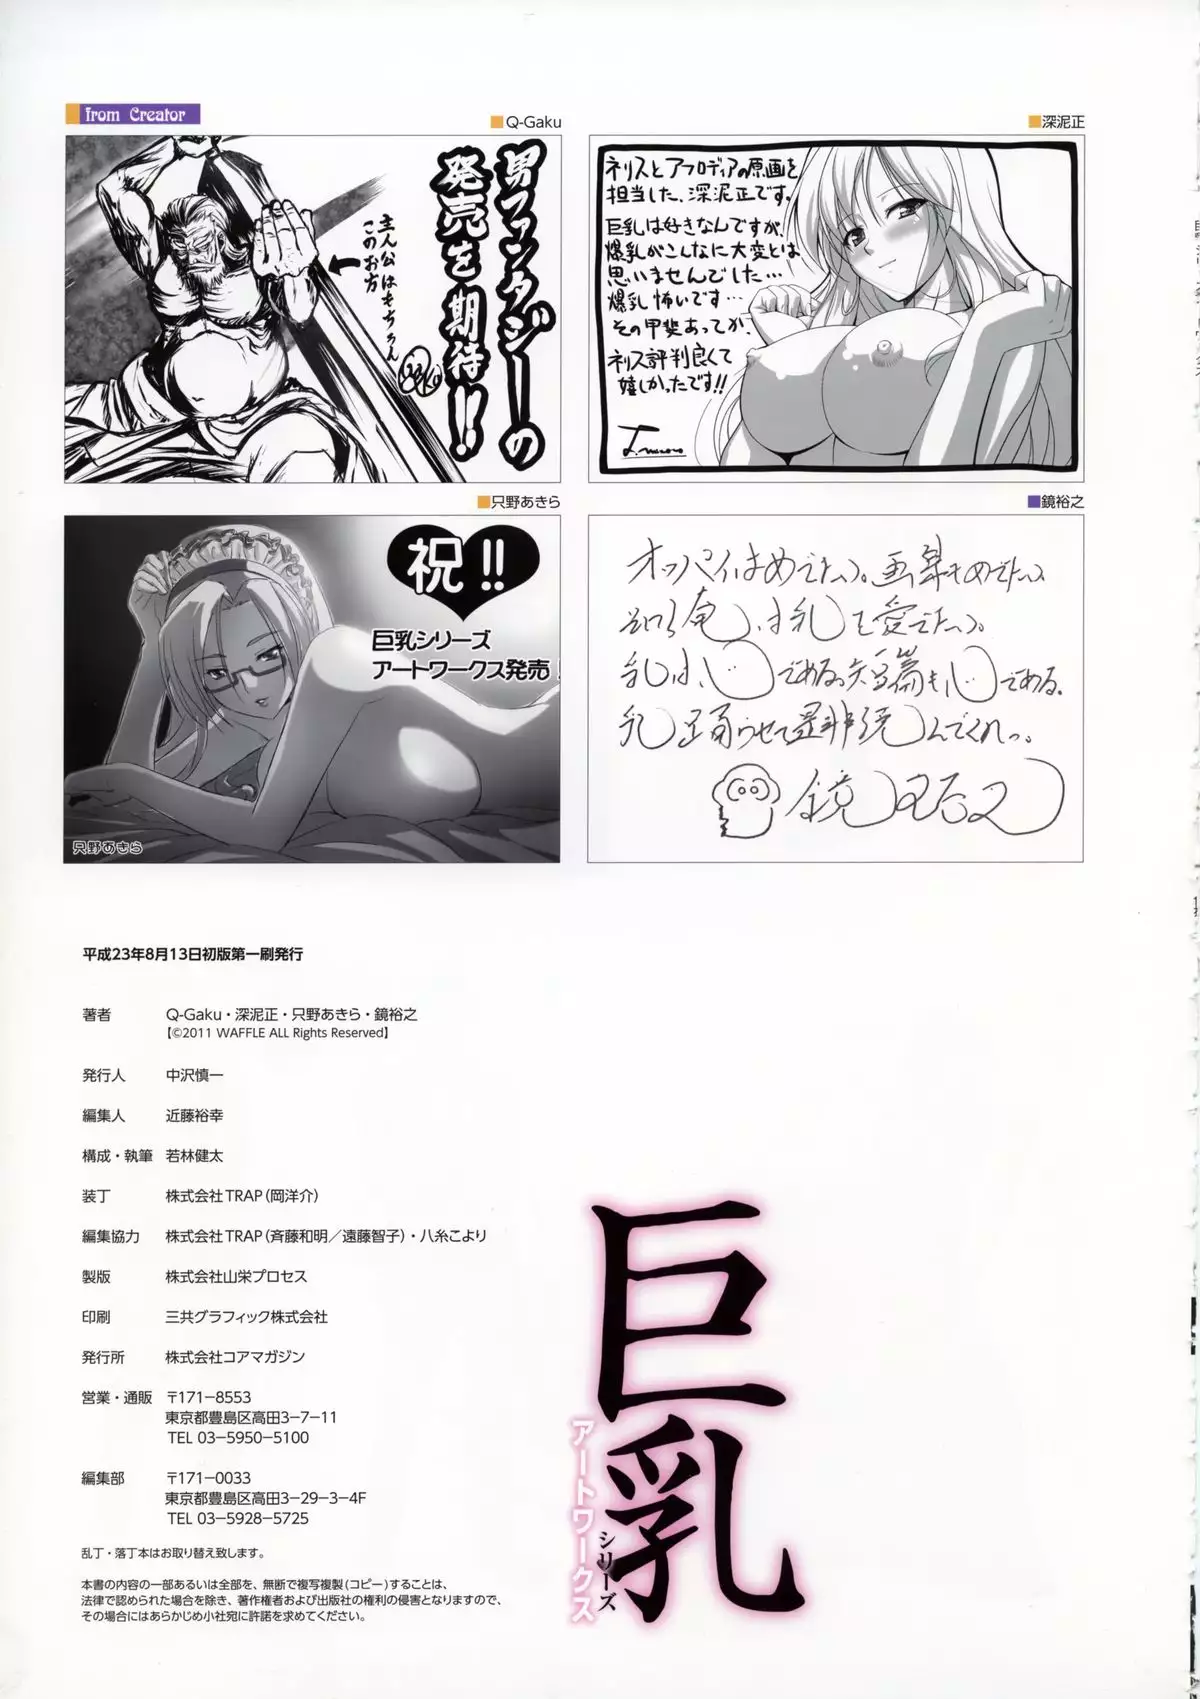 from Creator
Q-Gaku
男ファンタジーの
発売を期待!!
主人公はもちろん
このお方
深泥正
ネリスとアフロディアの原画を
担当した、深泥正です。
巨乳は好きなんですが、
爆乳がこんなに大変とは
思いませんでした…
爆乳怖いです…
その甲斐あってか、
ネリス評判良くて
嬉しかったです!!
只野あきら
祝!!
巨乳シリーズ
アートワークス発売!
只野あきら
鏡裕之
オッパイはめでたい。画集もめでたい
乳は心である。短篇も心である。
鏡裕之
平成23年8月13日初版第一刷発行
著者 Q-Gaku・深泥正・只野あきら・鏡裕之
【©2011 WAFFLE ALL Rights Reserved】
発行人 中沢慎一
編集人 近藤裕幸
構成・執筆 若林健太
装丁 株式会社TRAP(岡洋介)
編集協力 株式会社TRAP(斉藤和明/遠藤智子)・八糸こより
製版 株式会社山栄プロセス
印刷 三共グラフィック株式会社
発行所 株式会社コアマガジン
営業・通販 〒171-8553
東京都豊島区高田3-7-11
TEL 03-5950-5100
編集部 〒171-0033
東京都豊島区高田3-29-3-4F
TEL 03-5928-5725
乱丁・落丁本はお取り替え致します。
本書の内容の一部あるいは全部を、無断で複写複製(コピー)することは、
法律で認められた場合を除き、著作権者および出版社の権利の侵害となりますので、
その場合にはあらかじめ小社宛に許諾を求めてください。
巨乳
シリーズ
アートワークス